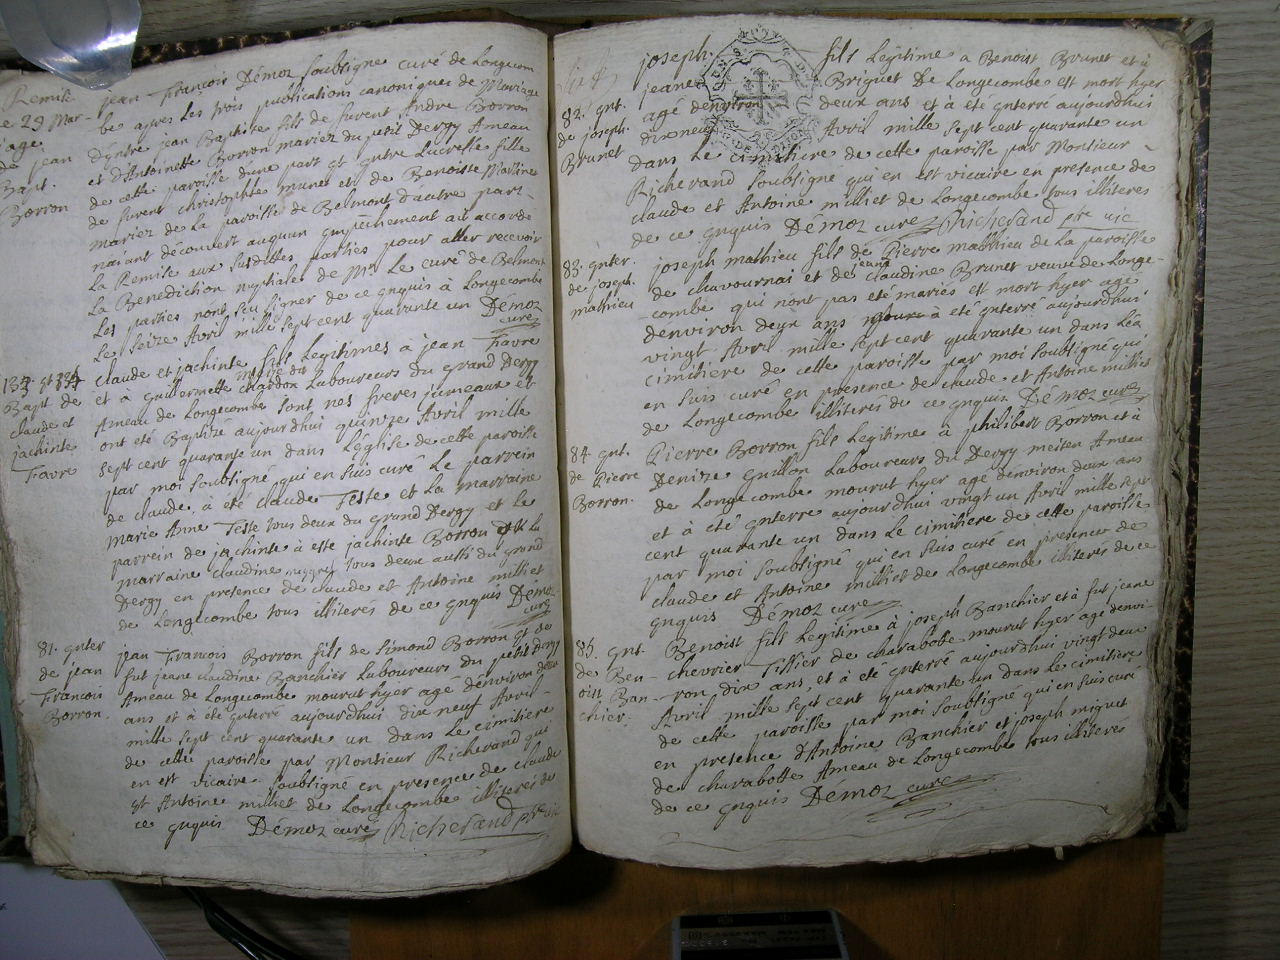 Remise
29 Mar-
iage
de jean
Bapt.
Borron
jean François Démoz soubsigné curé de Longecom
be apres les trois publications canoniques de Mariage
d'entre jean Baptiste fils de furent Andre Borron
et d'Antoinette Borron mariez du petit Dergy Ameau
de cette paroisse dune part et entre Lucresse fille
de furent christophle munet et de Benoiste Martine
mariez de La paroisse de Belmont d'autre part
naiant découvert auquun empechement ai accordé
La Remise aux susdittes parties pour aller recevoir
La Benediction nuptiale de Mr Le curé de Belmont
Les parties nont seu signer de ce enquis à Longecombe
Le seize Avril mille sept cent quarante un Démoz
curé
133 et 134
Bapt de
claude et
jachinte
Favre
claude et jachinte fils Legitimes à jean Favre
et à guillermette chardon Laboureurs du grand Dergy
Ameau de Longecombe sont nes freres jumeaux et
ont eté Baptisé aujourdhui quinze Avril mille
sept cent quarante un dans L'eglise de cette paroisse
par moi soubsigné qui en suis curé Le parrein
de claude, à été claude Teste et La marraine
Marie Anne Teste tous deux du grand Dergy et Le
parrein de jachinte à este jachinte Borron et La
marraine claudine tous deux aussi du grand
Dergy en presence de claude et Antoine milliet
de Longecombe tous illiterés de ce enquis Démoz
curé
81. enter
de jean
François
Borron.
jean François Borron fils de Simond Borron et de
fut jeane claudine Banchier Laboureurs du petit Dergy
Ameau de Longecombe mourut hyer agé d'environ deux
ans et à été enterré aujourdhui dix neuf Avril
mille sept cent quarante un dans Le cimitiere
de cette paroisse par Monsieur Richerand qui
en est vicaire soubsigné en presence de claude
et Antoine milliet de Longecombe illiterés de
ce enquis Démoz curé Richerand ptre vic
82. ent.
de joseph
Brunet
joseph fils Legitime a Benoist Brunet et à
jeane Briguet De Longecombe est mort hyer
agé d'environ deux ans et à été enterré aujourdhui
dix neuf Avril mille sept cent quarante un
dans Le cimitiere de cette paroisse par Monsieur
Richerand soubsigné qui en est vicaire en presence de
claude et Antoine milliet de Longecombe tous illiteres
de ce enquis Démoz curé Richerand ptre vic
83. enter.
de joseph
mathieu
joseph mathieu fils de Pierre mathieu de La paroisse
de chavournai et de jeane claudine Brunet veuve de Longe-
combe qui nont pas eté mariés est mort hyer agé
denviron deux ans à été enterré aujourdhui
vingt Avril mille sept cent quarante un dans Léa
cimitiere de cette paroisse par moi soubsigné qui
en suis curé en presence de claude et Antoine milliet
de Longecombe illiterés de ce enquis Démoz curé
84 ent.
de Pierre
Borron.
Pierre Borron fils Legitime à philibert Borron et à
Denize Guillon Laboureurs du Dergy meiten Ameau
de Longecombe mourut hyer agé denviron deux ans
et à été enterré aujourdhui vingt un Avril mille sept
cent quarante un dans Le cimitiere de cette paroisse
par moi soubsigné qui en suis curé en presence de
claude et Antoine milliet de Longecombe illiterés de ce
enquis Démoz curé
85. ent.
de Ben-
oist Ban-
chier.
Benoist fils Legitime à joseph Banchier et à fut jeane
chevrier Tissier de charabote mourut hyer agé denvi-
ron, dix ans, et à été enterré aujourdhui vingt deux
Avril mille sept cent quarante un dans Le cimitiere
de cette paroisse par moi soubsigné qui en suis curé
en presence d'Antoine Banchier et joseph miguet
de charabotte Ameau de Longecombe tous illiterés
de ce enquis Démoz curé